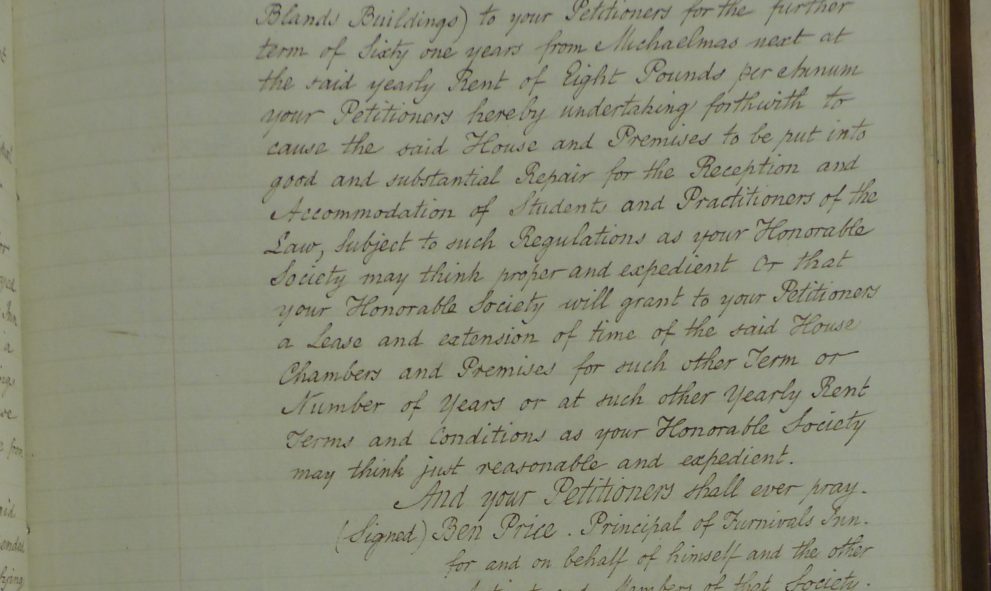 Blands Buildings) to your Petitioners for the further
term of Sixty one years from Michaelmas next at
the said yearly Rent of Eight Pounds per Annum
your Petitioners hereby undertaking forthwith to
cause the said House and Premises to be put into
good and substantial Repair for the Reception and
Accommodation of Students and Practitioners of the
Law, Subject to such Regulations as your Honorable
Society may think proper and expedient Or that
your Honorable Society will grant to your Petitioners
a Lease and extension of time of the said House
Chambers and Premises for such other Term or
Number of Years or at such other Yearly Rent
Terms and Conditions as your Honorable Society
may think just reasonable and expedient.
And your Petitioners shall ever pray.
(Signed) Ben Price. Principal of Furnivals Inn.
for and on behalf of himself and the other
Members of that Society.